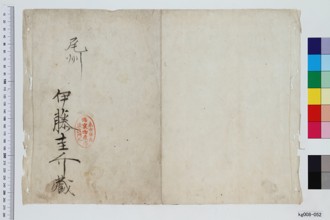 尾州
伊藤圭介蔵
kg008-002